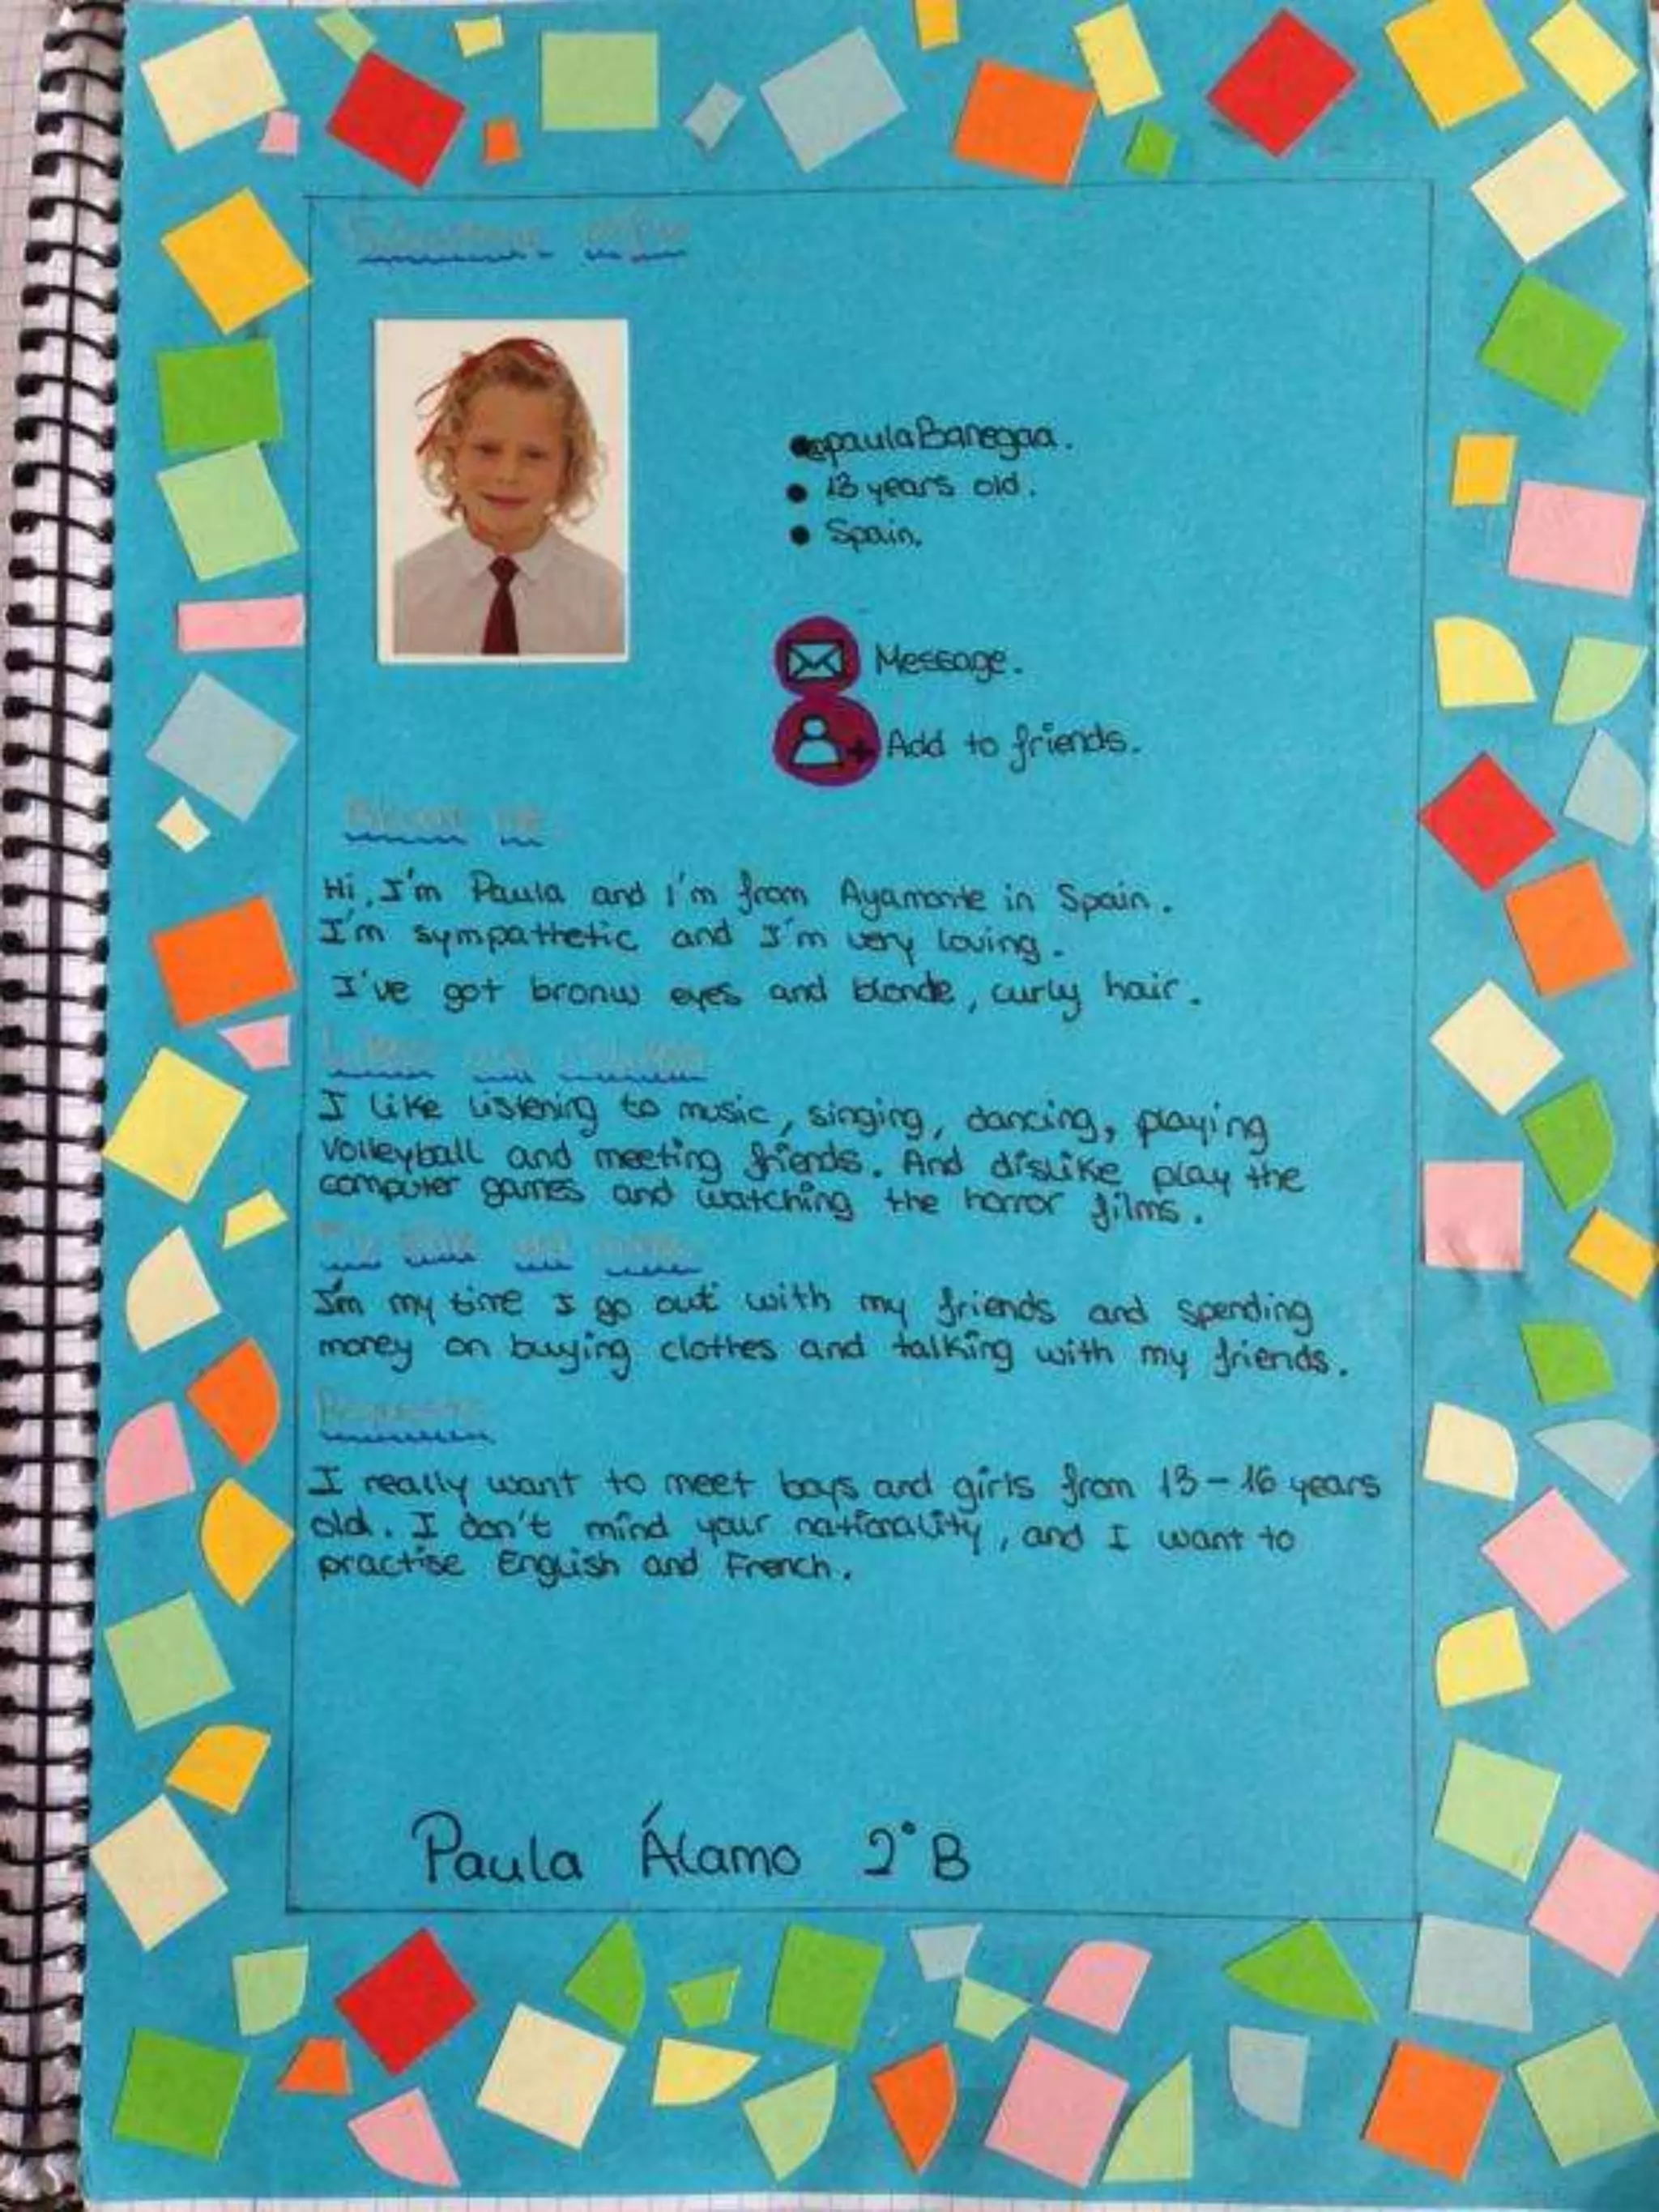 @paulaBanegaa.
13 years old.
Spain.
Message.
Add to friends.
About me.
Hi, I'm Paula and I'm from Ayamonte in Spain.
I'm sympathetic and I'm very loving.
I've got bronw eyes and blonde, curly hair.
Likes and dislikes
I like listening to music, singing, dancing, playing
volleyball and meeting friends. And dislike play the
computer games and watching the horror films.
I'm my time I go out with my friends and spending
money on buying clothes and talking with my friends.
Requests
I really want to meet boys and girls from 13-16 years
old. I don't mind your nationality, and I want to
practise English and French.
Paula Álamo 2°B